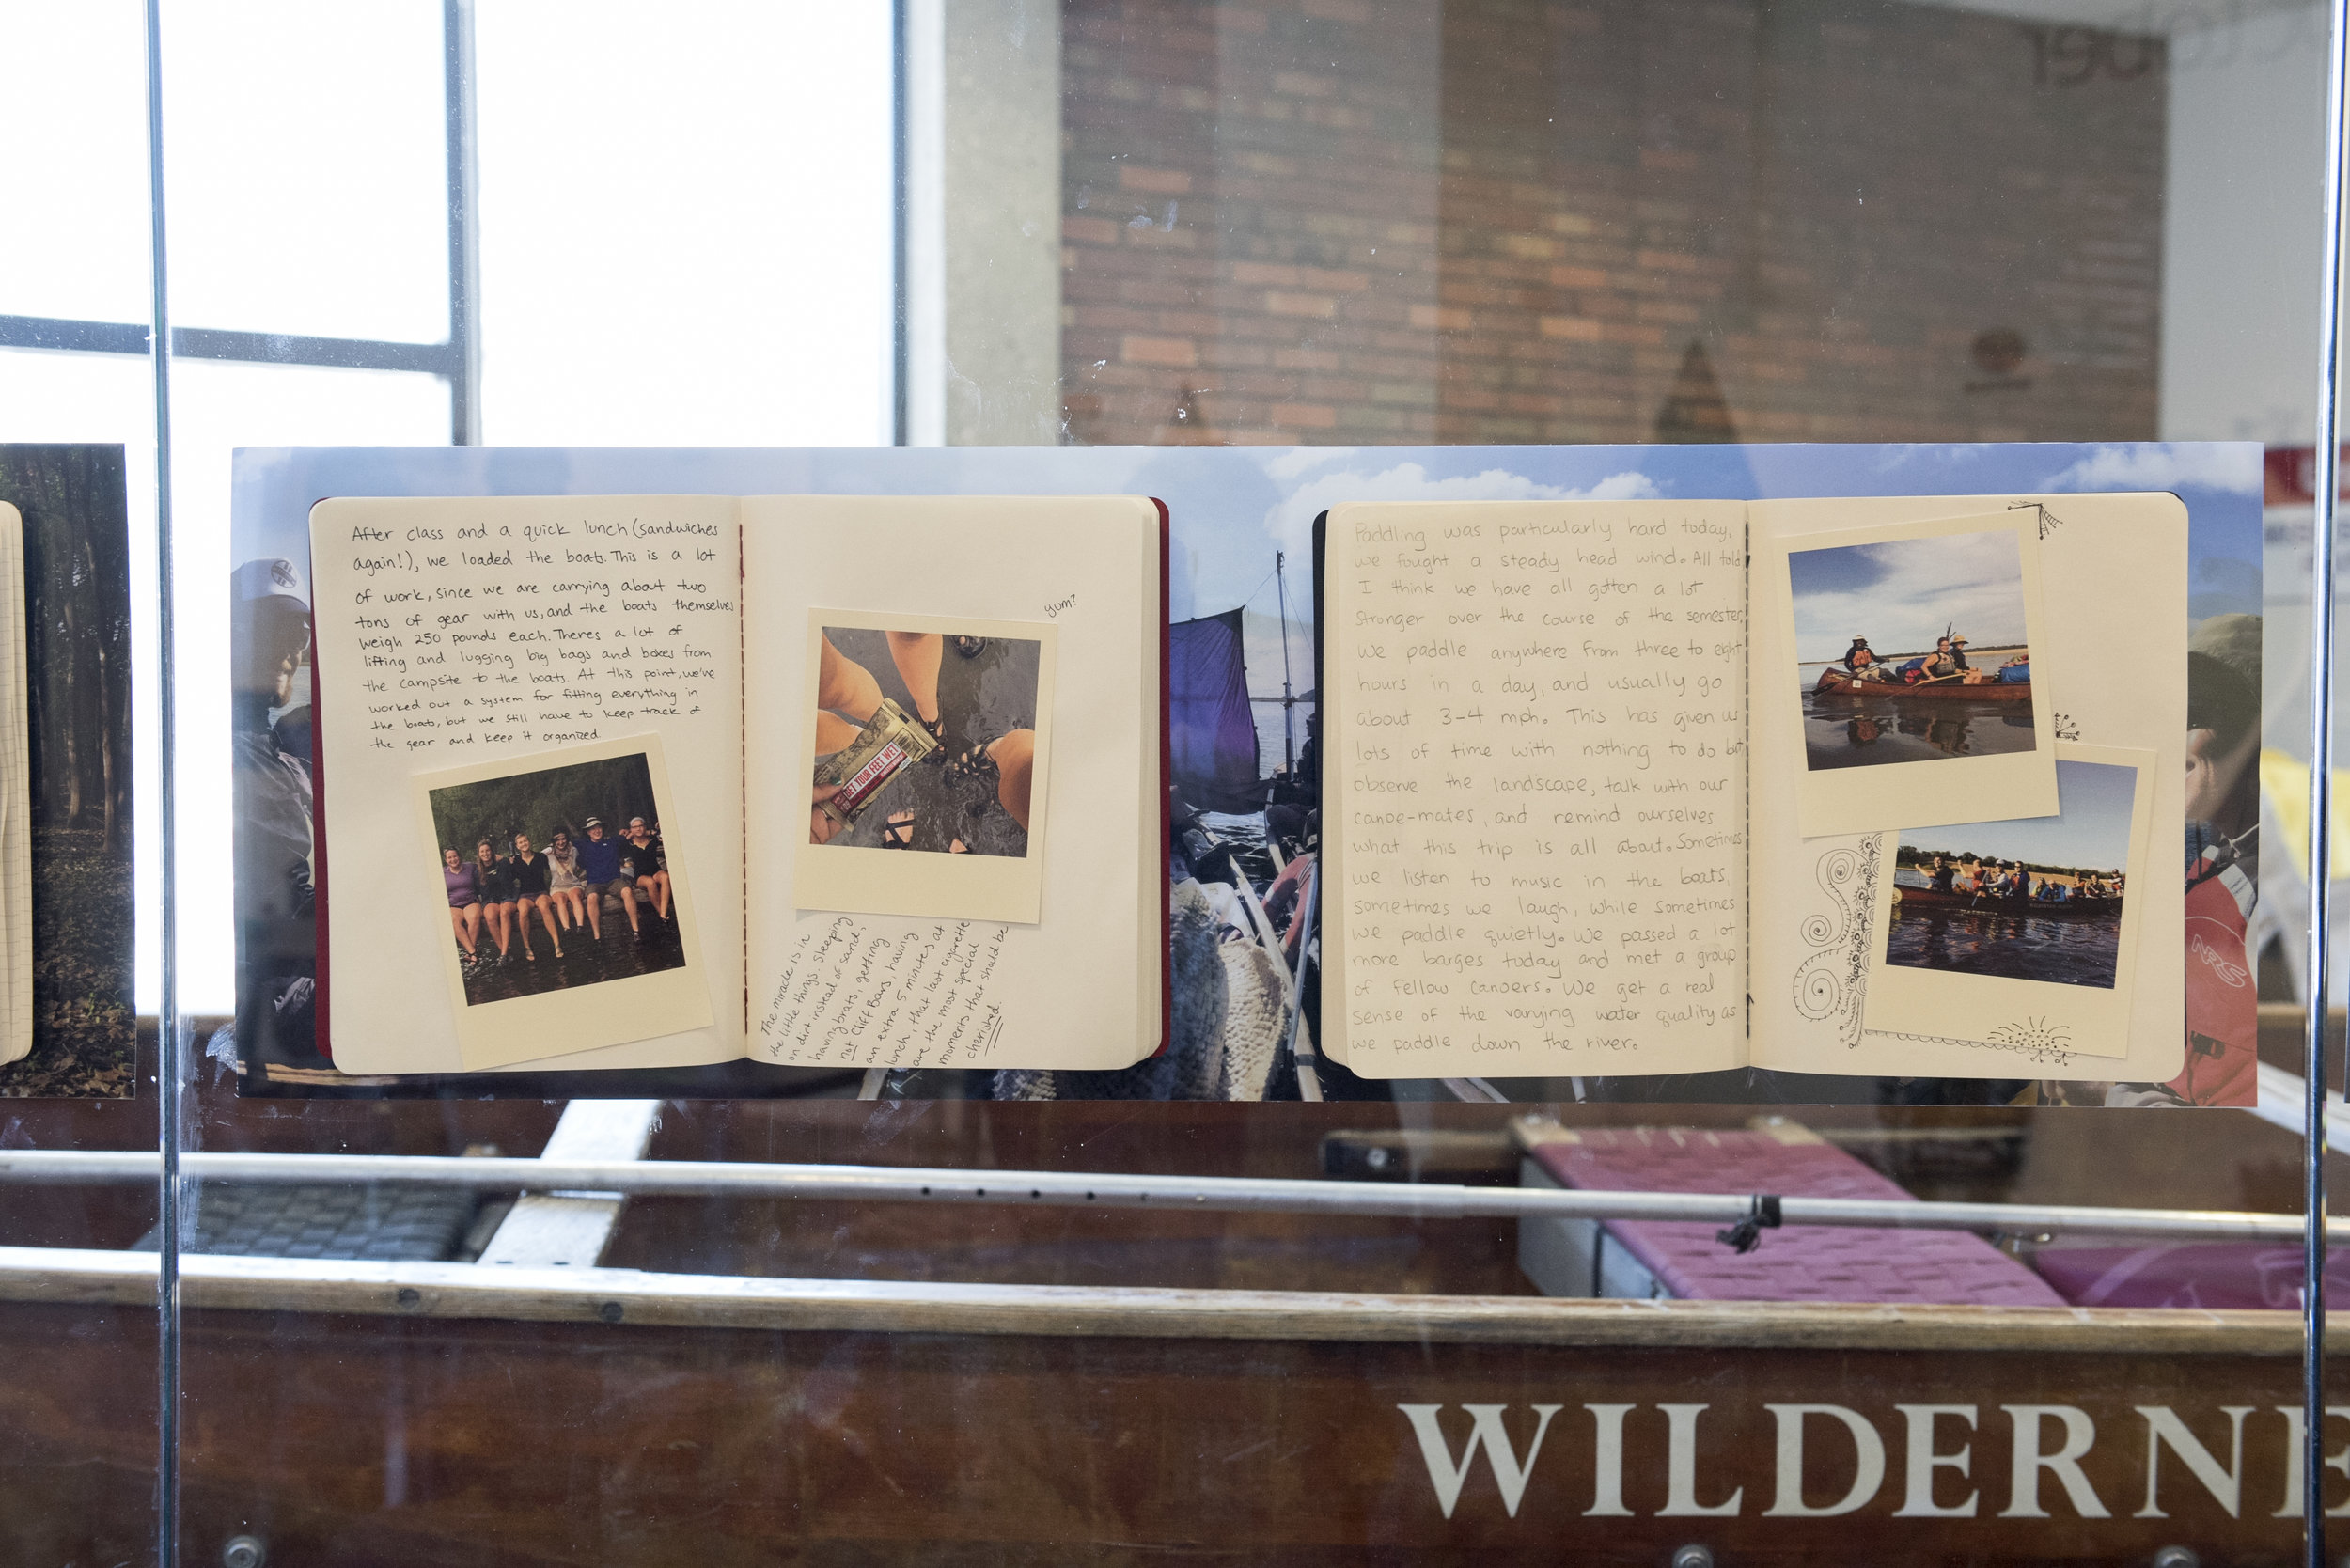 After class and a quick lunch (sandwiches
again!), we loaded the boats. This is a lot
of work, since we are carrying about two
tons of gear with us, and the boats themselves
weigh 250 pounds each. Theres a lot of
lifting and lugging big bags and boxes from
the campsite to the boats. At this point, we've
worked out a system for fitting everything in
the boats, but we still have to keep track of
the gear and keep it organized.
yum?
GET YOUR FEET WET
The miracle is in
the little things. Sleeping
on dirt instead of sand,
having brats, getting
not Cliff Bars, having
an extra 5 minutes at
lunch, that last cigarette
are the most special
moments that should be
cherished.
Paddling was particularly hard today,
we fought a steady head wind. All told
I think we have all gotten a lot
stronger over the course of the semester,
we paddle anywhere from three to eight
hours in a day, and usually go
about 3-4 mph. This has given us
lots of time with nothing to do but
observe the landscape, talk with our
canoe-mates, and remind ourselves
what this trip is all about. Sometimes
we listen to music in the boats,
sometimes we laugh, while sometimes
we paddle quietly. We passed a lot
more barges today and met a group
of fellow canoers. We get a real
sense of the varying water quality as
we paddle down the river.
NRS
WILDERNE